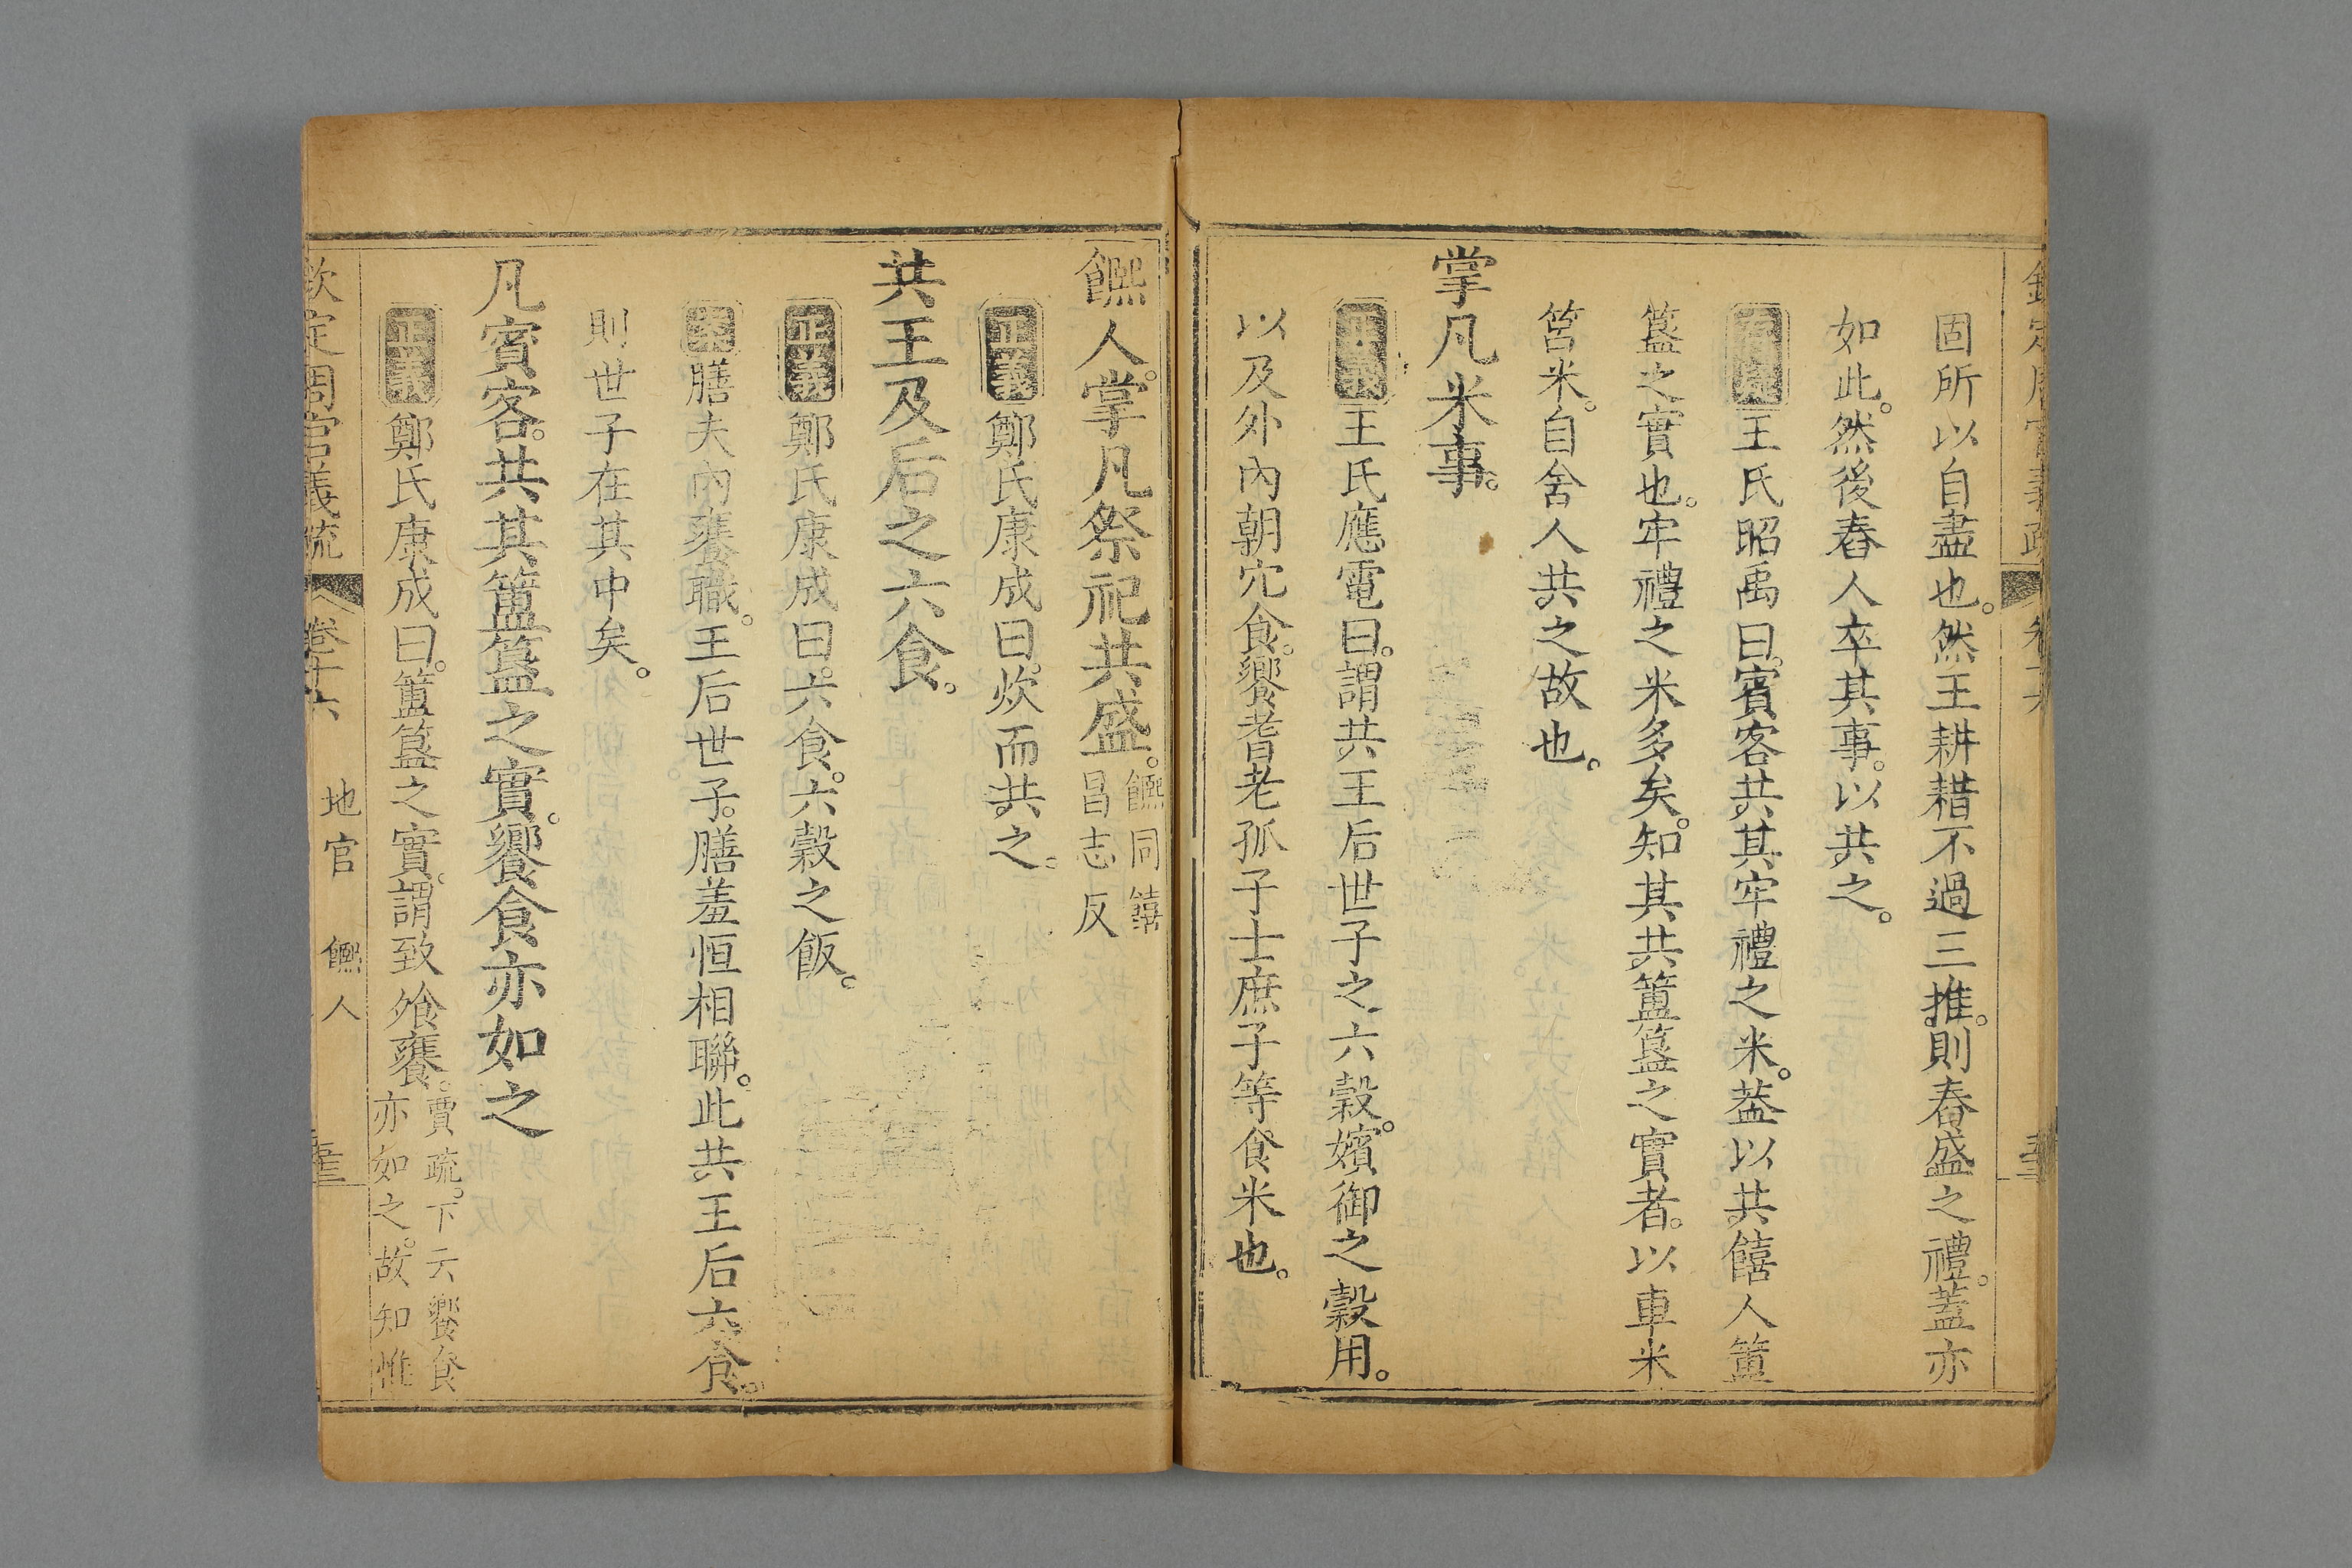 固所以自盡也。然王耕耤不過三推。則舂盛之禮。蓋亦
如此。然後舂人卒其事。以共之。
王氏昭禹曰。賓客共其牢禮之米。葢以共饎人簠
簋之實也。牢禮之米多矣。知其共簠簋之實者。以車米
筥米。自舍人共之故也。
掌凡米事。
正義王氏應電曰。謂共王后世子之六穀。嬪御之穀用。
以及外內朝宂食。饗耆老孤子士庶子等食米也。
饎人。掌凡祭祀共盛。
饎同𩟄
昌志反
正義鄭氏康成曰。炊而共之。
共王及后之六食。
正義鄭氏康成曰。六食。六穀之飯。
案膳夫內饔職。王后世子。膳羞恒相聯。此共王后六食。
則世子在其中矣。
凡賓客。共其簠簋之實。饗食亦如之
正義鄭氏康成曰。簠簋之實。謂致飧饔。
賈疏。下云饗食
亦如之。故知惟
欽定周官義疏
卷十六 地官 饎人